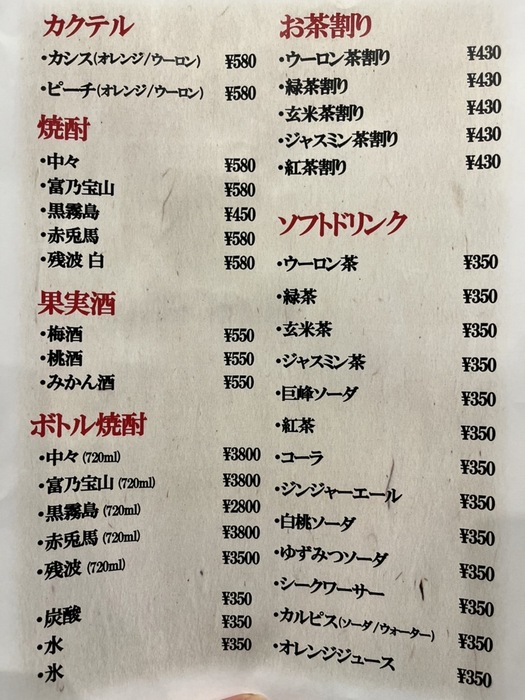 カクテル
・カシス(オレンジ/ウーロン) ¥580
・ピーチ(オレンジ/ウーロン) ¥580
焼酎
・中々 ¥580
・富乃宝山 ¥580
・黒霧島 ¥450
・赤兎馬 ¥580
・残波 白 ¥580
果実酒
・梅酒 ¥550
・桃酒 ¥550
・みかん酒 ¥550
ボトル焼酎
・中々 (720ml) ¥3800
・富乃宝山 (720ml) ¥3800
・黒霧島 (720ml) ¥2800
・赤兎馬 (720ml) ¥3800
・残波 (720ml) ¥3500
・炭酸 ¥350
・水 ¥350
・氷 ¥350
お茶割り
・ウーロン茶割り ¥430
・緑茶割り ¥430
・玄米茶割り ¥430
・ジャスミン茶割り ¥430
・紅茶割り ¥430
ソフトドリンク
・ウーロン茶 ¥350
・緑茶 ¥350
・玄米茶 ¥350
・ジャスミン茶 ¥350
・巨峰ソーダ ¥350
・紅茶 ¥350
・コーラ ¥350
・ジンジャーエール ¥350
・白桃ソーダ ¥350
・ゆずみつソーダ ¥350
・シークワーサー ¥350
・カルピス(ソーダ/ウォーター) ¥350
・オレンジジュース ¥350